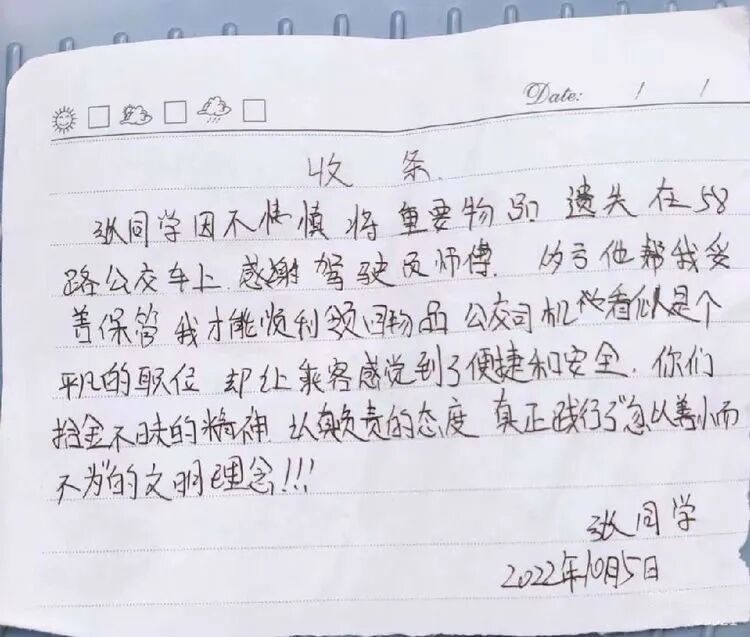 Date: / /
收 条
张同学因不慎慎将重要物品遗失在58
路公交车上.感谢驾驶员师傅.多亏他帮我妥
善保管 我才能顺利领回物品 公交司机 看似是个
平凡的职位 却让乘客感觉到了便捷和安全.你们
拾金不昧的精神 认真负责的态度 真正践行了"忽以善小而
不为"的文明理念!!!
张同学
2022年10月5日